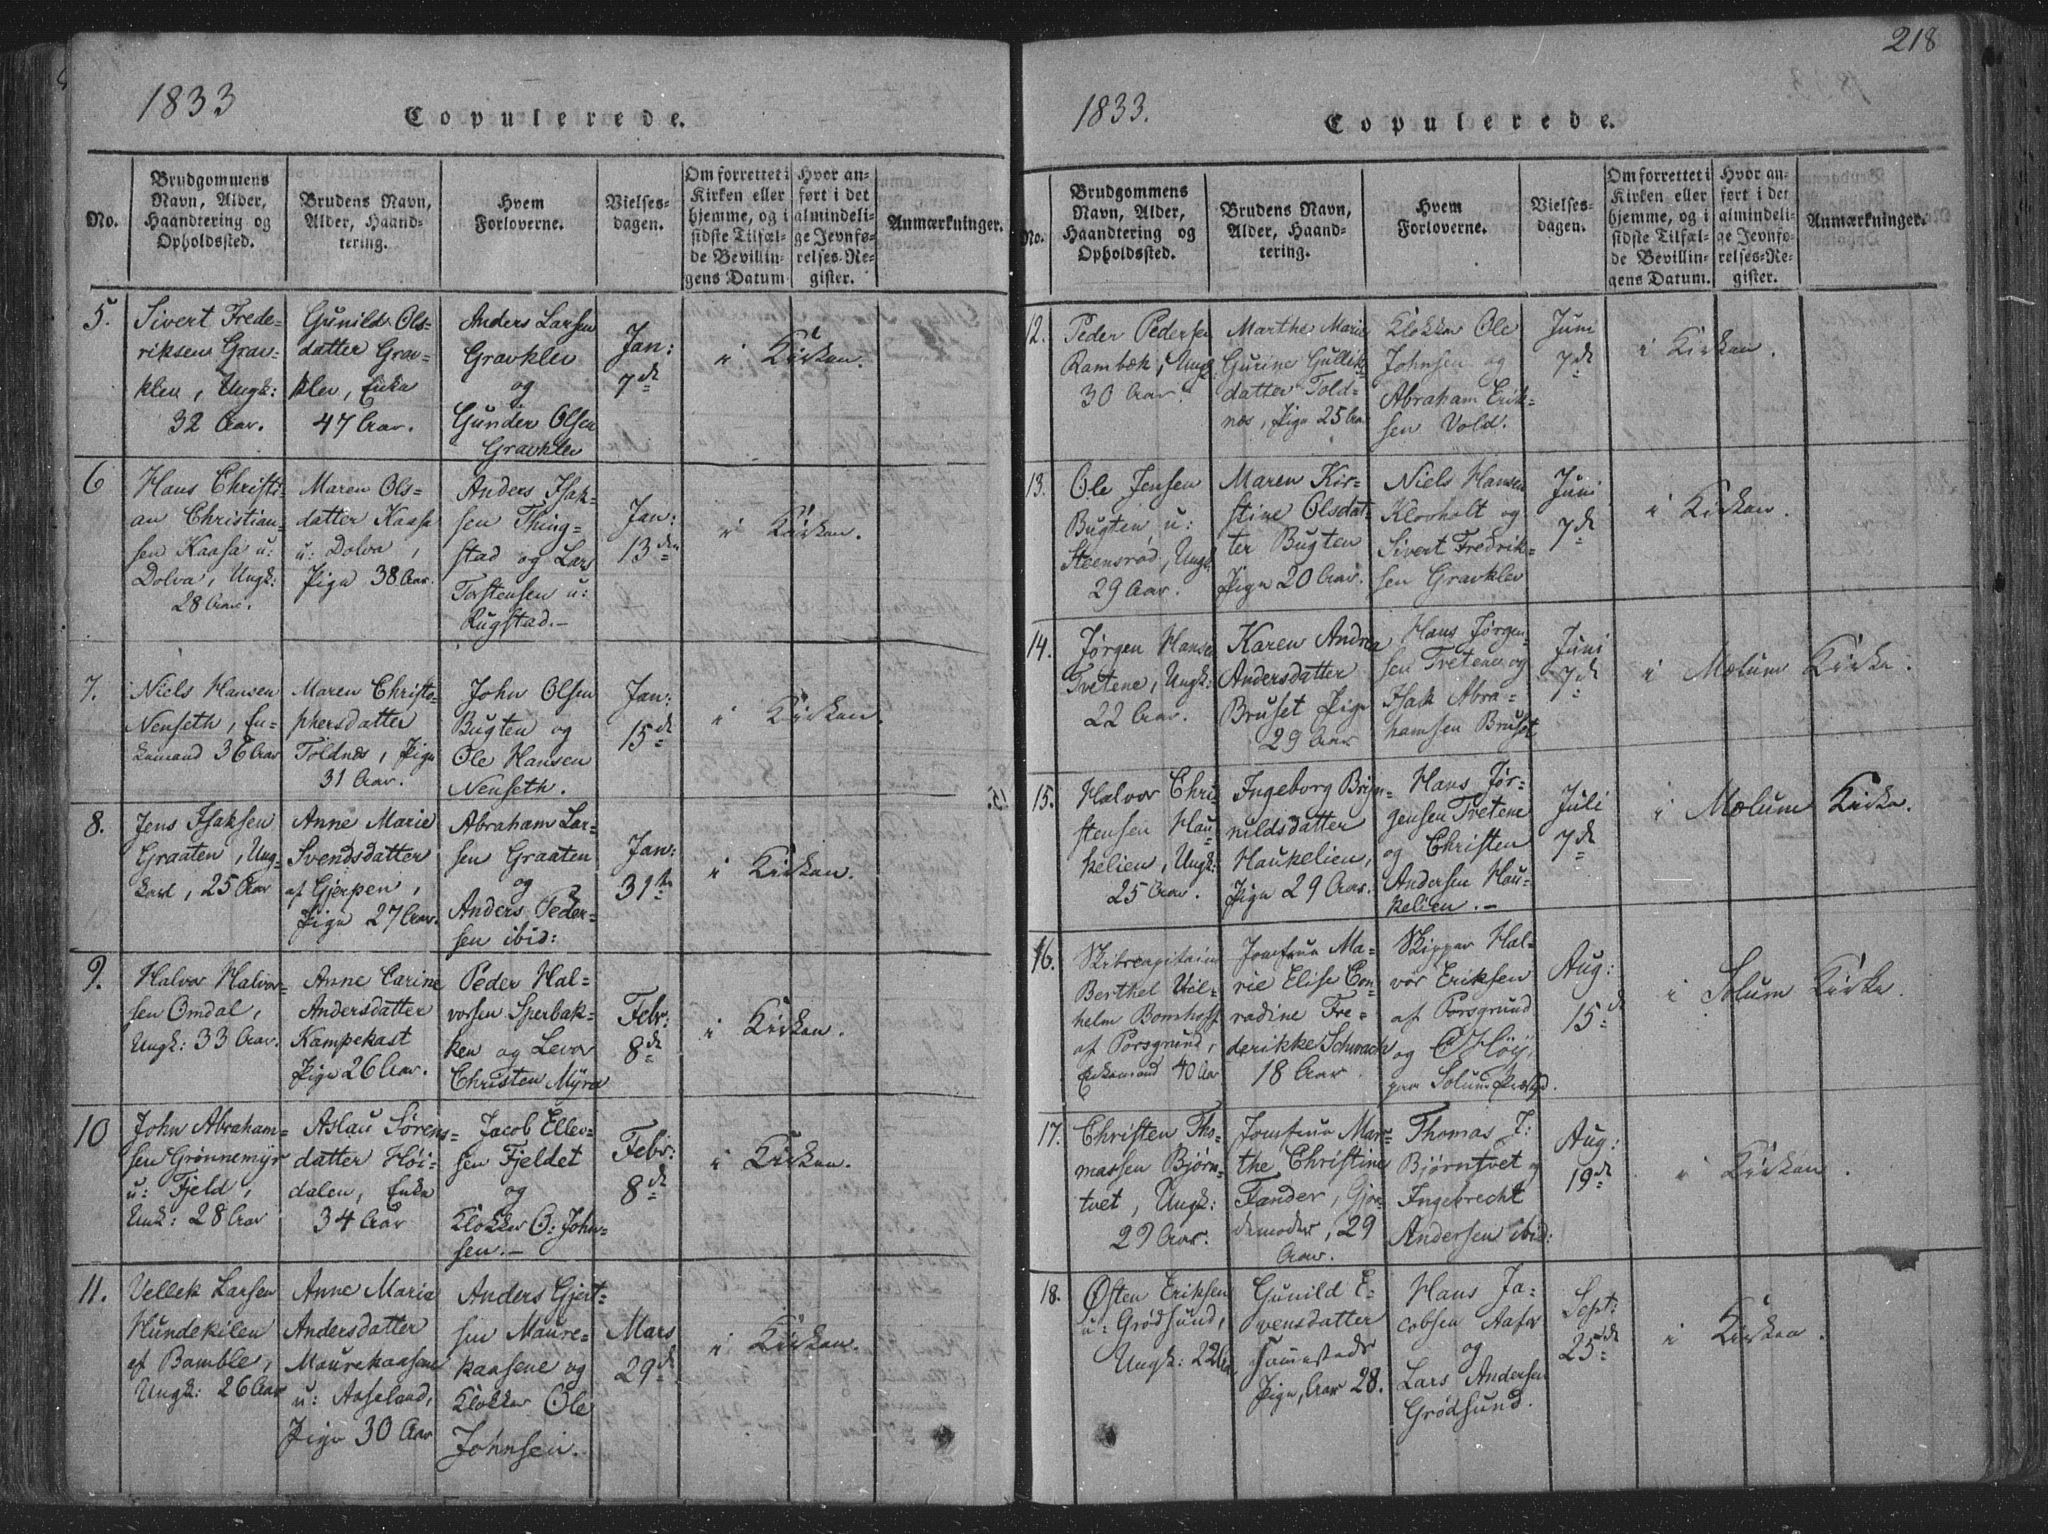 218
1833
Copulerede.
No.
Brudgommens
Navn, Alder,
Haandtering og
Opholdssted.
Brudens Navn,
Alder, Haand-
tering.
Hvem
Forloverne.
Vielses-
dagen.
Om forrettet i
Kirken eller
hjemme, og i
sidste Tilfæl-
de Bevillin-
gens Datum
Hvor an-
ført i det
almindeli-
ge Jevnfø-
relses-Re-
gister.
Anmærkninger.
5.
Sivert Frede-
riksen Grav-
klev, Ungk:
32 Aar.
Gunild Ols-
datter Grav-
klev, Enke
47 Aar.
Anders Larsen
Gravklev
og
Gunder Olsen
Gravklev
Jan:
7de
i Kirken.
6
Hans Christi-
an Christian-
sen Kaasa u:
Dolva, Ungk:
28 Aar.
Maren Ols-
datter Kaasa
u: Dolva,
Pige 38 Aar.
Anders Isak-
sen Thing-
stad og Lars
Torstensen u:
Rugstad.-
Jan:
13den
i Kirken.
7.
Niels Hansen
Nenseth, En-
kemand 36 Aar
Maren Christo-
phersdatter
Toldnes, Pige
31 Aar.
John Olsen
Bugten og
Ole Hansen
Nenseth.
Jan:
15de
i Kirken.
8.
Jens Isaksen
Graaten, Ung-
karl, 25 Aar
Anne Marie
Svendsdatter
af Gjerpen,
Pige 27 Aar.
Abraham Lar-
sen Graaten
og
Anders Peder-
sen ibid:
Jan:
31te
i Kirken.
9.
Halvor Halvor-
sen Omdal,
Ungk: 33 Aar.
Anne Carine
Andersdatter
Kampekast
Pige 26 Aar.
Peder Hal-
vorsen Sperbak-
ken og Levor
Christen Myra
Febr:
8de
i Kirken.
10
John Abraham-
sen Grønnemyr
u: Fjeld,
Unk: 28 Aar
Aslau Sørens-
datter Høi-
dalen, Enke
34 Aar
Jacob Ellev-
sen Fjeldet
og
Klokker O: John-
sen.-
Febr:
8de
i Kirken.
11.
Vellek Larsen
Hundekilen
af Bamble,
Ungk: 26 Aar
Anne Maria
Andersdatter
Maurekaasene
u: Aaseland,
Pige 30 Aar
Anders Gjert-
sen Maure-
kaasene og
Klokker Ole
Johnsen.
Mars
29de
i Kirken.
1833.
Copulerede.
No.
Brudgommens
Navn, Alder,
Haandtering og
Opholdssted.
Brudens Navn,
Alder, Haand-
tering.
Hvem
Forloverne.
Vielses-
dagen.
Om forrettet i
Kirken eller
hjemme, og i
sidste Tilfæl-
de Bevillin-
gens Datum.
Hvor an-
ført i det
almindeli-
ge Jevnfø-
relses-Re-
gister.
Anmærkninger.
12.
Peder Pedersen
Rambæk, Ungk:
30 Aar.
Marthe Marie
Gurine Gulleks-
datter Told-
nes, Pige 25 Aar
Klokker Ole
Johnsen og
Abraham Erik-
sen Vold.
Juni
7de
i Kirken.
13.
Ole Jensen
Bugten u:
Steensrød, Ungk:
29 Aar.
Maren Kir-
stine Olsdat-
ter Bugten
Pige 20 Aar.
Niels Hansen
Klovholt og
Sivert Fredrik-
sen Gravklev
Juni
7de
i Kirken.
14.
Jørgen Hansen
Tvetene, Ungk:
22 Aar.
Karen Andrea
Andersdatter
Bruset Pige
29 Aar
Hans Jørgen-
sen Tvetene og
Isak Abra-
hamsen Bruset
Juni
7de
i Mælum Kirke.
15.
Halvor Chri-
stensen Hau-
kelien, Ungk:
25 Aar.
Ingeborg Bryn-
nildsdatter
Haukelien,
Pige 29 Aar.
Hans Jør-
gensen Tvetene
og Christen
Andersen Hau-
kelien.-
Juli
7de
i Mælum Kirke.
16.
Skibscapitain
Berthel Vil-
helm Bomhoff
af Porsgrund,
Enkemand 40 Aar
Jomfrue Ma-
rie Elise Con-
radine Fre-
derikke Schwach
18 Aar.
Skipper Hal-
vor Eriksen
af Porsgrund
og C Høy
paa Solum Præstgd.
Aug:
15de
i Solum Kirke.
17.
Christen Tho-
massen Bjørn-
tvet, Ungk:
29 Aar.
Jomfrue Mar-
the Christine
Tander, Gjor-
demoder, 29
Aar.
Thomas J:
Bjørntvet og
Ingebrecht
Andersen ibid:
Aug:
19de
i Kirken.
18.
Østen Eriksen
u: Grødsund,
Ungk: 22 Aar
Gunild E-
vensdatter
sammesteds
Pige, Aar 28.
Hans Ja-
cobsen Aafos
og
Lars Andersen
Grødsund.
Sept:
25de
i Kirken.